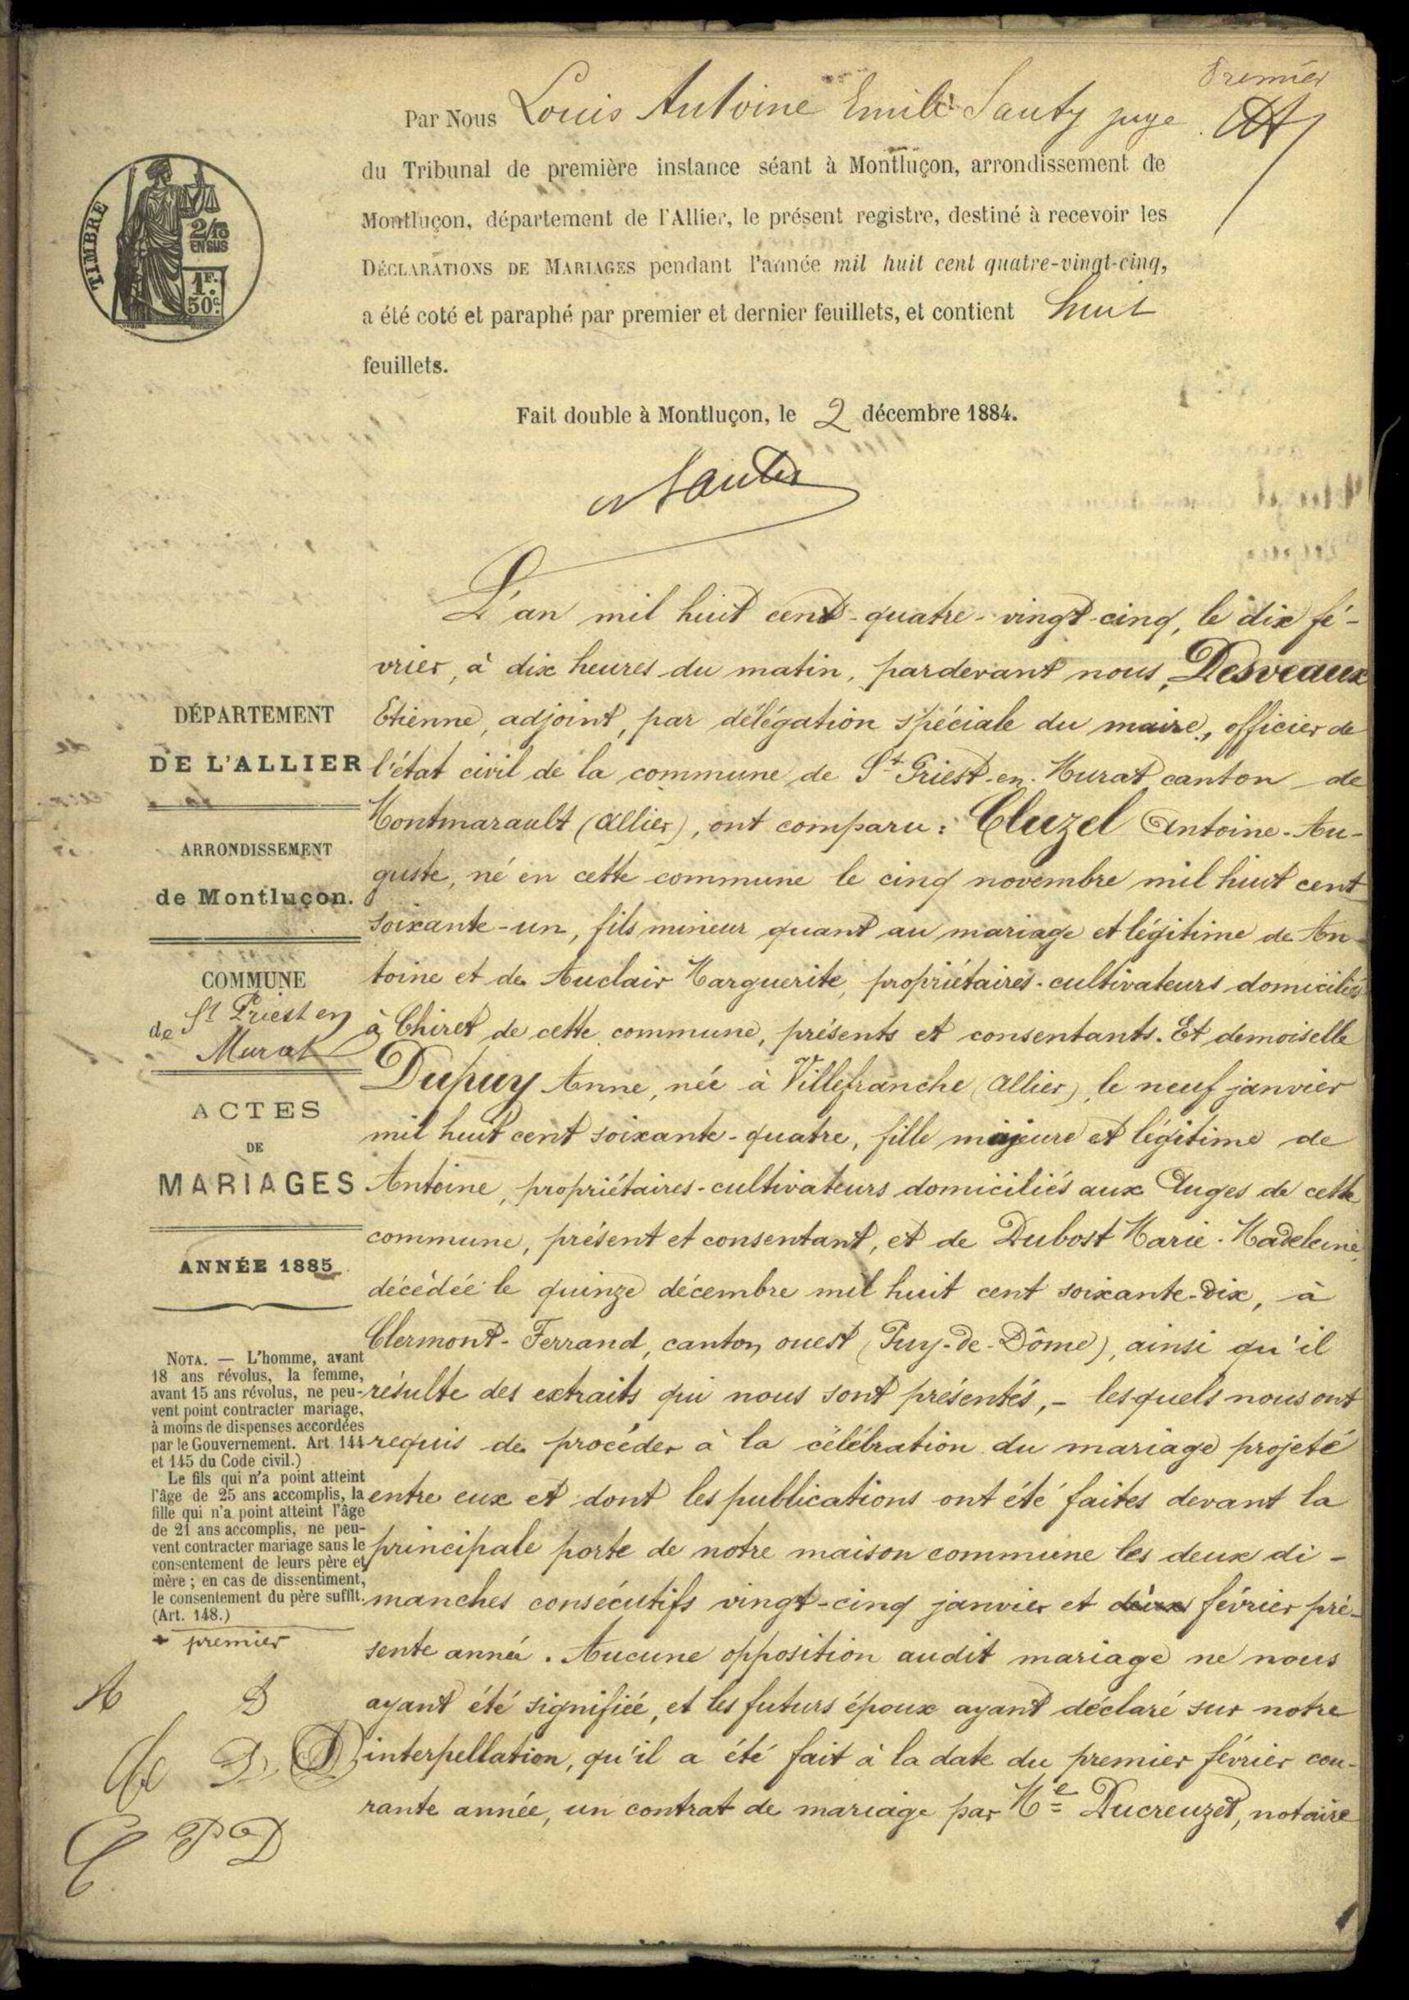 Premier
Par Nous Louis Antoine Emile Sauty juge
du Tribunal de première instance séant à Montluçon, arrondissement de
Montluçon, département de l'Allier, le présent registre, destiné à recevoir les
DÉCLARATIONS DE MARIAGES pendant l'année mil huit cent quatre-vingt-cinq,
a été coté et paraphé par premier et dernier feuillets, et contient huit
feuillets.
Fait double à Montluçon, le 2 décembre 1884.
TIMBRE
2/10
EN SUS
1F.
50c.
DÉPARTEMENT
DE L'ALLIER
ARRONDISSEMENT
de Montluçon.
COMMUNE
de St Priest en
Murat
ACTES
DE
MARIAGES
ANNÉE 1885
NOTA. — L'homme, avant
18 ans révolus, la femme,
avant 15 ans révolus, ne peu-
vent point contracter mariage,
à moins de dispenses accordées
par le Gouvernement. Art. 144
et 145 du Code civil.)
Le fils qui n'a point atteint
l'âge de 25 ans accomplis, la
fille qui n'a point atteint l'âge
de 21 ans accomplis, ne peu-
vent contracter mariage sans le
consentement de leurs père et
mère ; en cas de dissentiment,
le consentement du père suffit.
(Art. 148.)
+ premier
A D
D D
C P D
L'an mil huit cent-quatre-vingt-cinq, le dix fé-
vrier, à dix heures du matin, pardevant nous, Desveaux
Etienne, adjoint, par délégation spéciale du maire, officier de
l'état civil de la commune de St Priest-en-Murat canton de
Montmarault (Allier), ont comparu : Cluzel Antoine-Au-
guste, né en cette commune le cinq novembre mil huit cent
soixante-un, fils mineur quant au mariage et légitime de An-
toine et de Auclair Marguerite, propriétaires-cultivateurs domiciliés
à Chiret de cette commune, présents et consentants. Et demoiselle
Dupuy Anne, née à Villefranche (Allier), le neuf janvier
mil huit cent soixante-quatre, fille majeure et légitime de
Antoine, propriétaires-cultivateurs domiciliés aux Auges de cette
commune, présent et consentant, et de Dubost Marie-Madeleine
décédée le quinze décembre mil huit cent soixante-dix, à
Clermont-Ferrand, canton ouest (Puy-de-Dôme), ainsi qu'il
résulte des extraits qui nous sont présentés, - lesquels nous ont
requis de procéder à la célébration du mariage projeté
entre eux et dont les publications ont été faites devant la
principale porte de notre maison commune les deux di-
manches consécutifs vingt-cinq janvier et deux février pré-
sente année. Aucune opposition audit mariage ne nous
ayant été signifiée, et les futurs époux ayant déclaré sur notre
interpellation, qu'il a été fait à la date du premier février cou-
rante année, un contrat de mariage par Me Ducreuzet, notaire
1